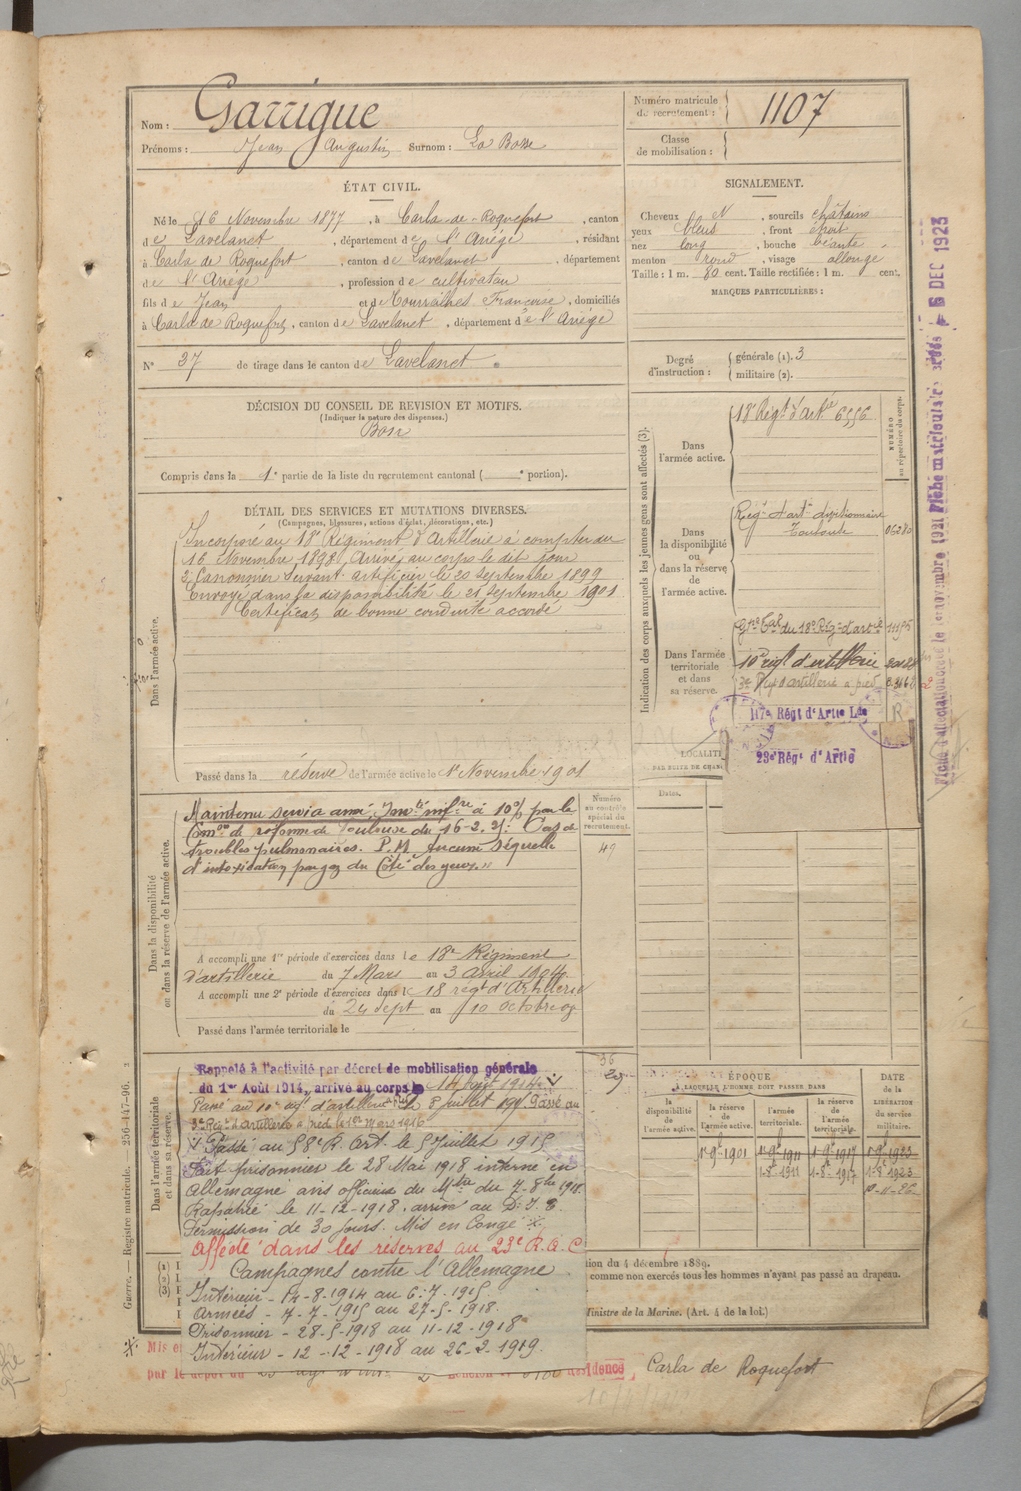 Nom : Garrigue
Prénoms : Jean Augustin Surnom : La Bosse
Numéro matricule de recrutement : 1107
Classe de mobilisation :
ÉTAT CIVIL.
Né le 16 Novembre 1877, à Carla-de-Roquefort, canton
de Lavelanet, département de l'Ariége, résidant
à Carla de Roquefort, canton de Lavelanet, département
de l'Ariége, profession de cultivateur
fils de Jean et de Tourrailhes Françoise, domiciliés
à Carla de Roquefort, canton de Lavelanet, département de l'Ariége
N° 37 de tirage dans le canton de Lavelanet
SIGNALEMENT.
Cheveux N, sourcils châtains
yeux bleus, front étroit
nez long, bouche béante
menton rond, visage allongé
Taille : 1 m. 80 cent. Taille rectifiée : 1 m. cent.
MARQUES PARTICULIÈRES :
Degré d'instruction : générale (1). 3
militaire (2).
DÉCISION DU CONSEIL DE REVISION ET MOTIFS.
(Indiquer la nature des dispenses.)
Bon
Compris dans la 1e partie de la liste du recrutement cantonal ( e portion).
DÉTAIL DES SERVICES ET MUTATIONS DIVERSES.
(Campagnes, blessures, actions d'éclat, décorations, etc.)
Dans l'armée active.
Incorporé au 18e Régiment d'Artillerie à compter du
16 Novembre 1898. Arrivé au corps le dit jour
2e Canonnier servant artificier le 20 Septembre 1899
Envoyé dans la disponibilité le 21 Septembre 1901
Certificat de bonne conduite accordé
Passé dans la réserve de l'armée active le 1er Novembre 1901
Indication des corps auxquels les jeunes gens sont affectés (3).
NUMÉRO au répertoire du corps.
Dans l'armée active.
18e Régt d'artie 6556
Dans la disponibilité ou dans la réserve de l'armée active.
Régt d'artie divisionnaire
Toulouse 06280
Dans l'armée territoriale et dans sa réserve.
Gpe Tal du 18e Régt d'artie 11195
10e régt d'artillerie
3e Régt d'artillerie à pied
117e Régt d'Artie Lde
23e Régt d'Artie
R
LOCALITÉ
PAR SUITE DE CHAN
Dates.
Dans la disponibilité ou dans la réserve de l'armée active.
Numéro au contrôle spécial du recrutement.
49
Maintenu service armé, Imté infre à 10% par la
Comon de réforme de Toulouse du 16-2-21. Pas de
troubles pulmonaires. P.M. Aucune séquelle
d'intoxication par gaz du Côté des yeux. "
A accompli une 1re période d'exercices dans le 18e Régiment
d'artillerie du 7 Mars au 3 Avril 1904.
A accompli une 2e période d'exercices dans le 18 regt d'Artillerie
du 24 Sept au 10 octobre
Passé dans l'armée territoriale le
Dans l'armée territoriale et dans sa réserve.
36
Rappelé à l'activité par décret de mobilisation générale
du 1er Août 1914, arrivé au corps le 14 août 1914
Passé au 10e régt d'artillerie le 8 juillet Passé au
3e Régt d'artillerie à pied le 1er Mars 1916
Passé au 58e R. Art. le 5 Juillet 1915
Fait prisonnier le 28 Mai 1918 interné en
Allemagne avis officiel du Mtre du 7-8bre 1918.
Rapatrié le 11-12-1918. arrivé au D.I.E.
Permission de 30 jours. Mis en Congé
Affecté dans les réserves au 23e R.A.C
Campagnes contre l'Allemagne
Intérieur - 14-8-1914 au 6-7-1915
Armées - 7-7-1915 au 27-5-1918
Prisonnier - 28-5-1918 au 11-12-1918
Intérieur - 12-12-1918 au 26-2-1919.
ÉPOQUE
À LAQUELLE L'HOMME DOIT PASSER DANS
DATE de la LIBÉRATION du service militaire.
la disponibilité de l'armée active.
la réserve de l'armée active.
l'armée territoriale.
la réserve de l'armée territoriale.
1er 9bre 1901 1er 9bre 1911 1er 9bre 1917 1er 9bre 1923
1-8-1911 1-8-1917 1-8bre 1923
tion du 4 décembre 1889.
comme non exercés tous les hommes n'ayant pas passé au drapeau.
Ministre de la Marine. (Art. 4 de la loi.)
Mis e
par le dépôt du
Résidence Carla de Roquefort
Guerre. — Registre matricule. — 256-447-96.
DEC 1923